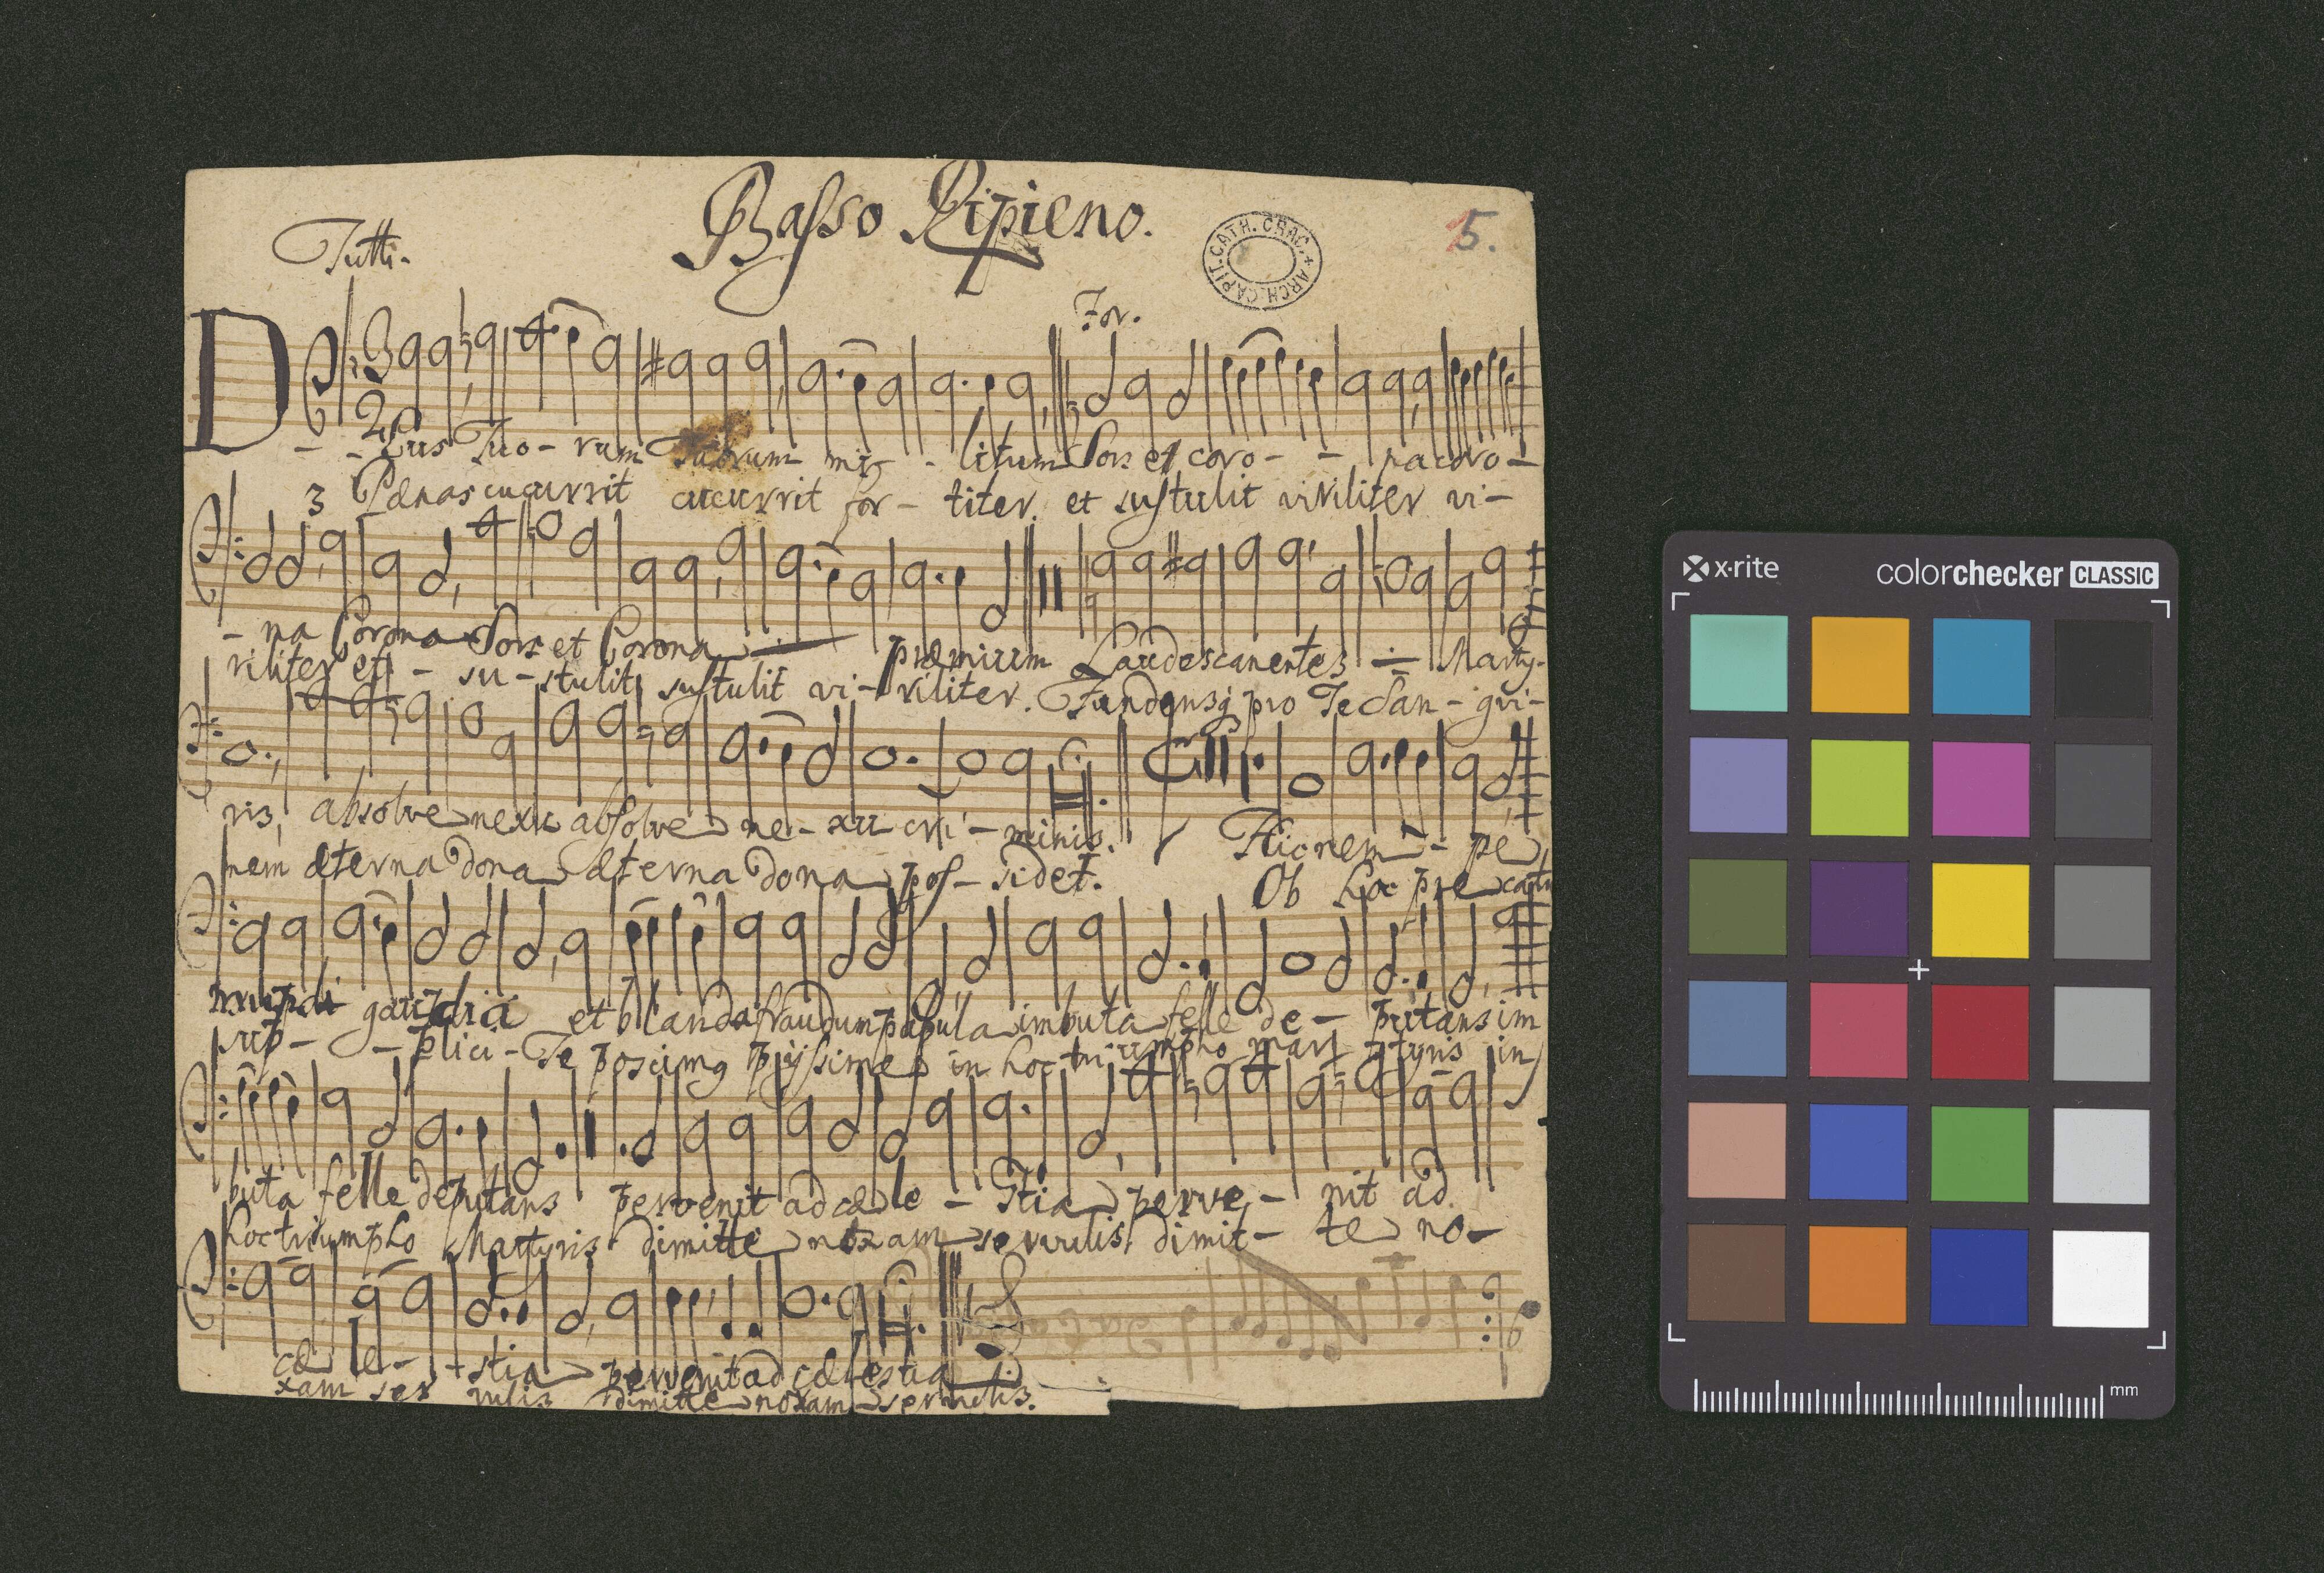 Basso Ripieno.
CAPIT. CATH. CRAC. * ARCH.
15.
Tutti.
For.
D - - Eus Tuo - rum Tuorum mi - - litum Sors et coro - - na coro -
3 Pænas cucurrit cucurrit for - titer. et sustulit viriliter vi -
- na Corona Sors et Corona præmium Laudes canentes ·/· Marty -
riliter et - su - stulit sustulit vi - riliter. Fundensq pro Te San - gvi -
ris, absolve nexu absolve ne - xu cri - minis. Hic nem - pe
nem æterna dona æterna dona pos - sidet. Ob hoc precatu
mundi gaudia et blanda fraudum pabula imbuta felle de - putans im
sup - - plici - Te poscimg pijssime in hoc triumpho mar tyris in
buta felle deputans pervenit ad cæle - stia perve - nit ad
hoc triumpho Martyris dimitte noxam servulis dimit - te no -
cæ le - - stia pervenit ad cælestia
xam ser vulis dimitte noxam servulis.
x·rite colorchecker CLASSIC
mm